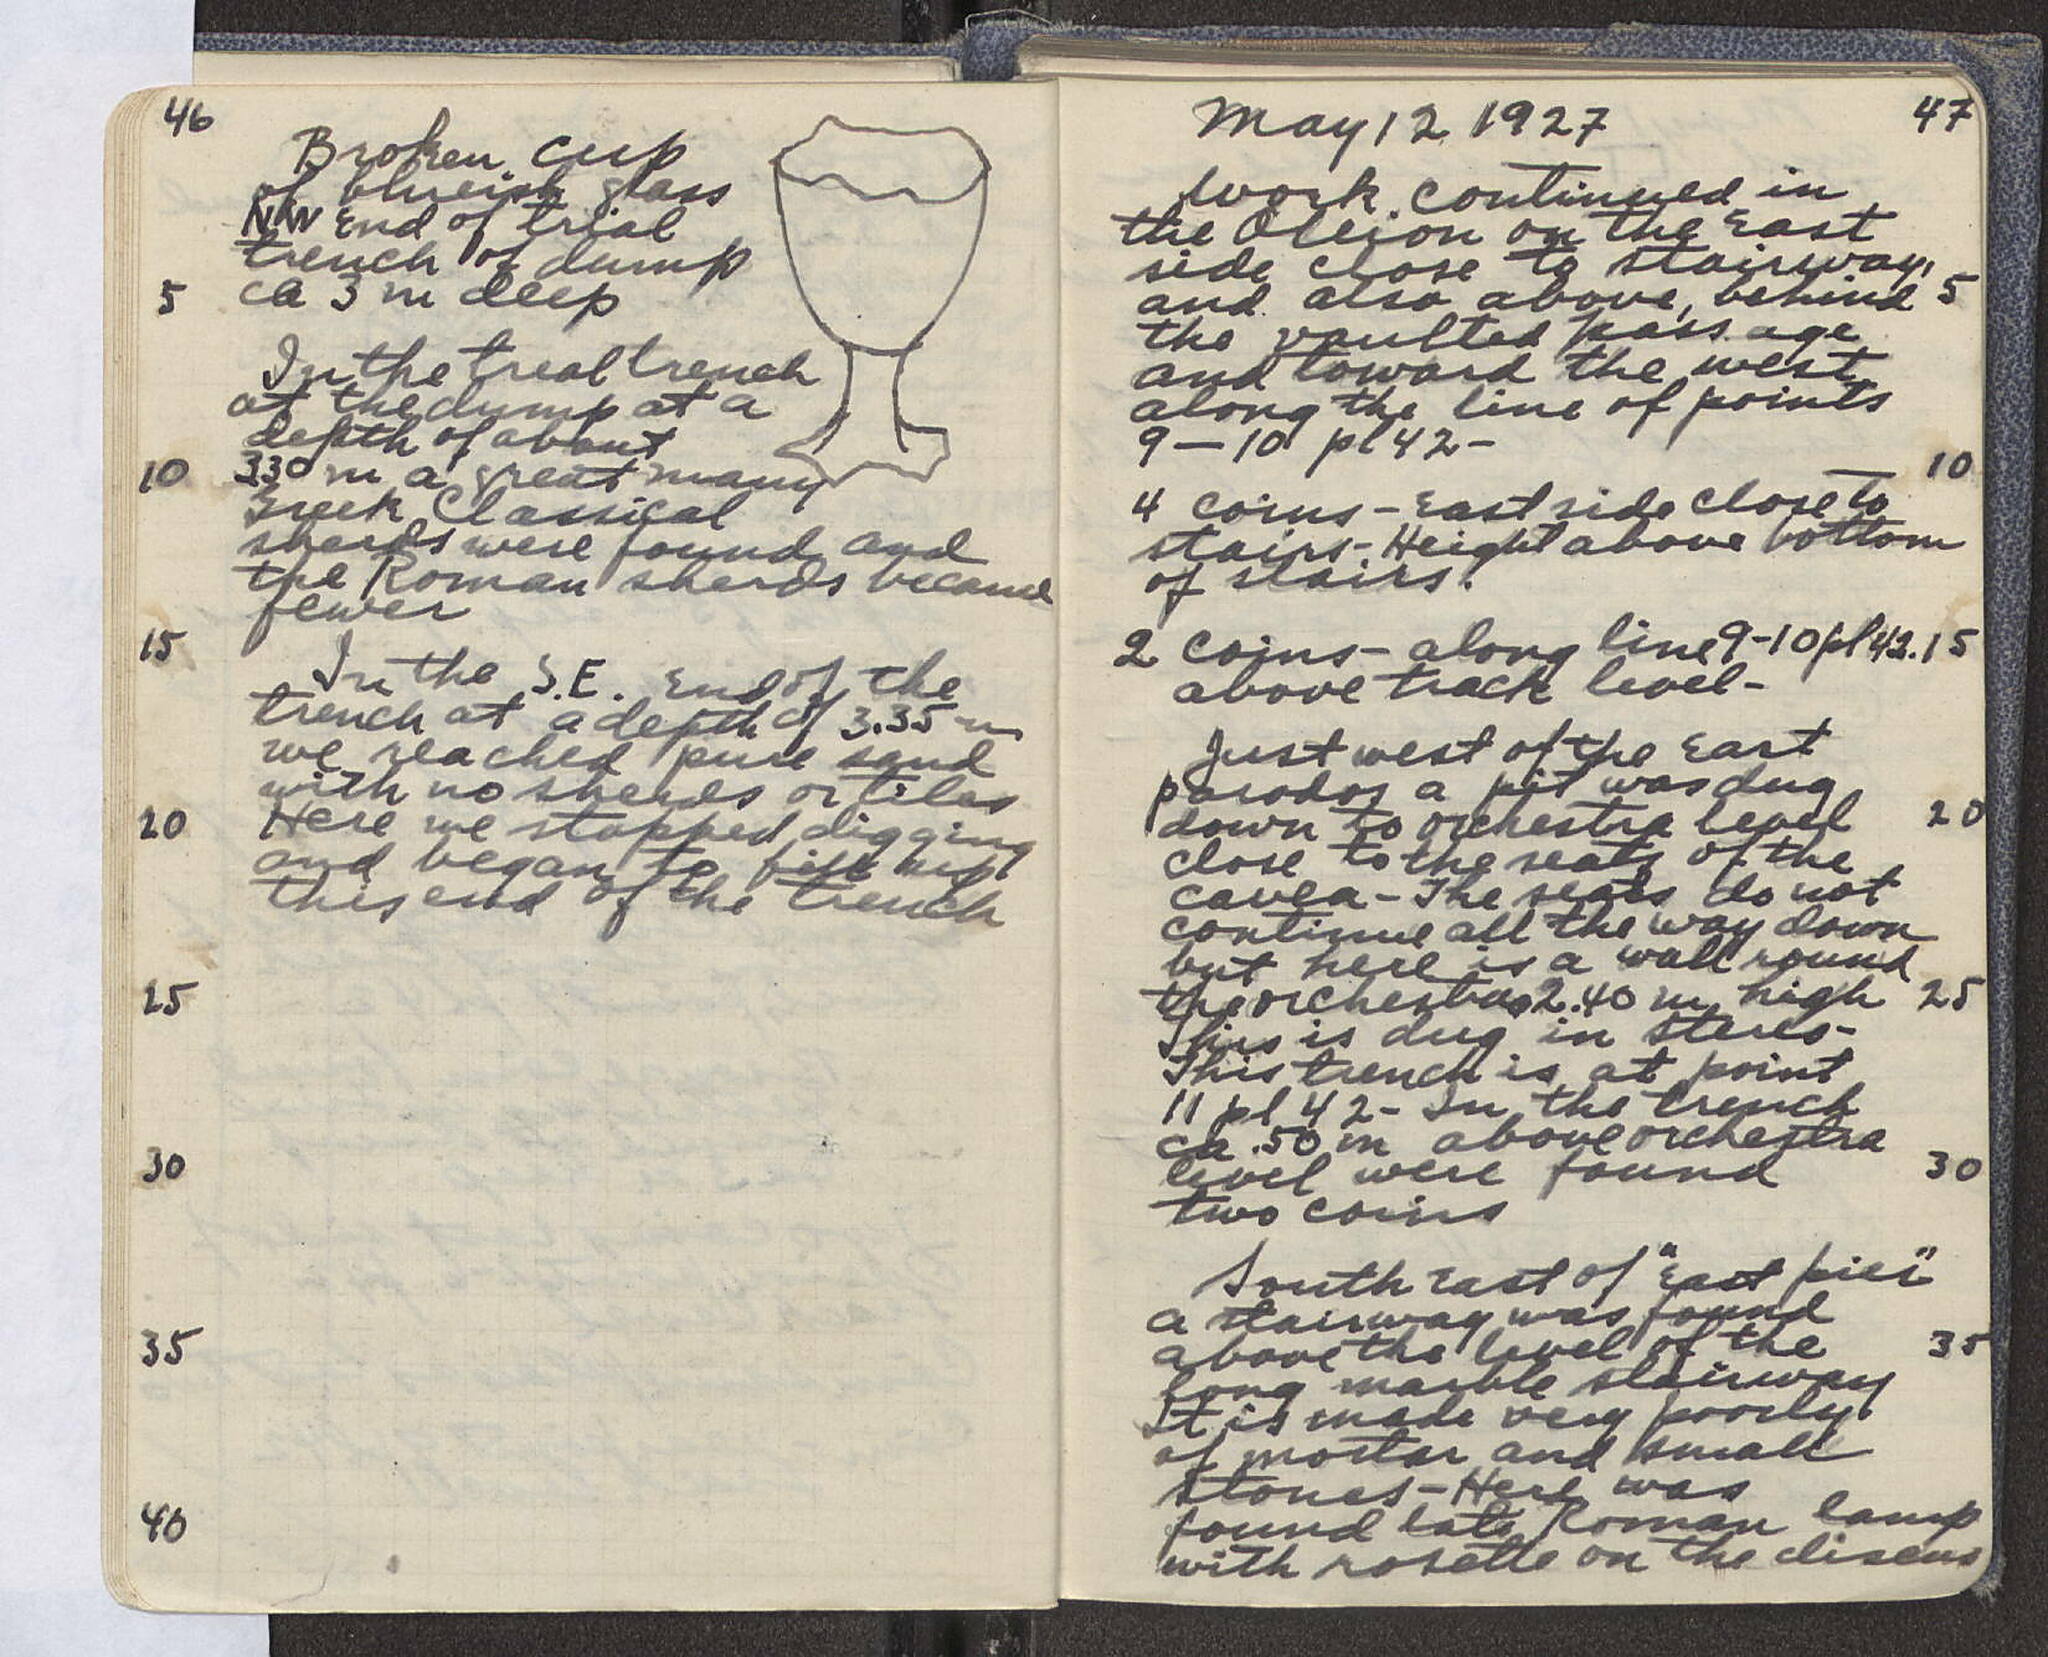 46
Broken cup
of blueish glass
NW End of trial
trench of dump
5 ca 3 m deep
In the treal trench
at the dump at a
depth of about
10 330 m a great many
Greek Classical
sherds were found and
the Roman sherds became
fewer
15
In the S.E. End of the
trench at a depth of 3.35 m
we reached pure sand
with no sherds or tiles
20 Here we stopped digging
and began to fill up
this end of the trench
25
30
35
40
May 12 1927 47
Work continued in
the Odeion on the East
side close to stairway,
and also above, behind 5
the vaulted passage
and toward the west
along the line of points
9–10 pl 42–
10
4 coins – East side close to
stairs – Height above bottom
of stairs.
2 coins – along line 9-10 pl 42. 15
above track level –
Just west of the East
parodos a pit was dug
down to orchestra level 20
close to the seats of the
cavea – The seats do not
continue all the way down
but here is a wall round
the orchestra 2.40 m high 25
This is dug in stereo –
This trench is at point
11 pl 42 – In the trench
ca .50 m above orchestra
level were found 30
two coins
South East of "East pier"
a stairway was found
above the level of the 35
long marble stairway
It is made very poorly
of mortar and small
stones – Here was
found late Roman lamp
with rosette on the discus